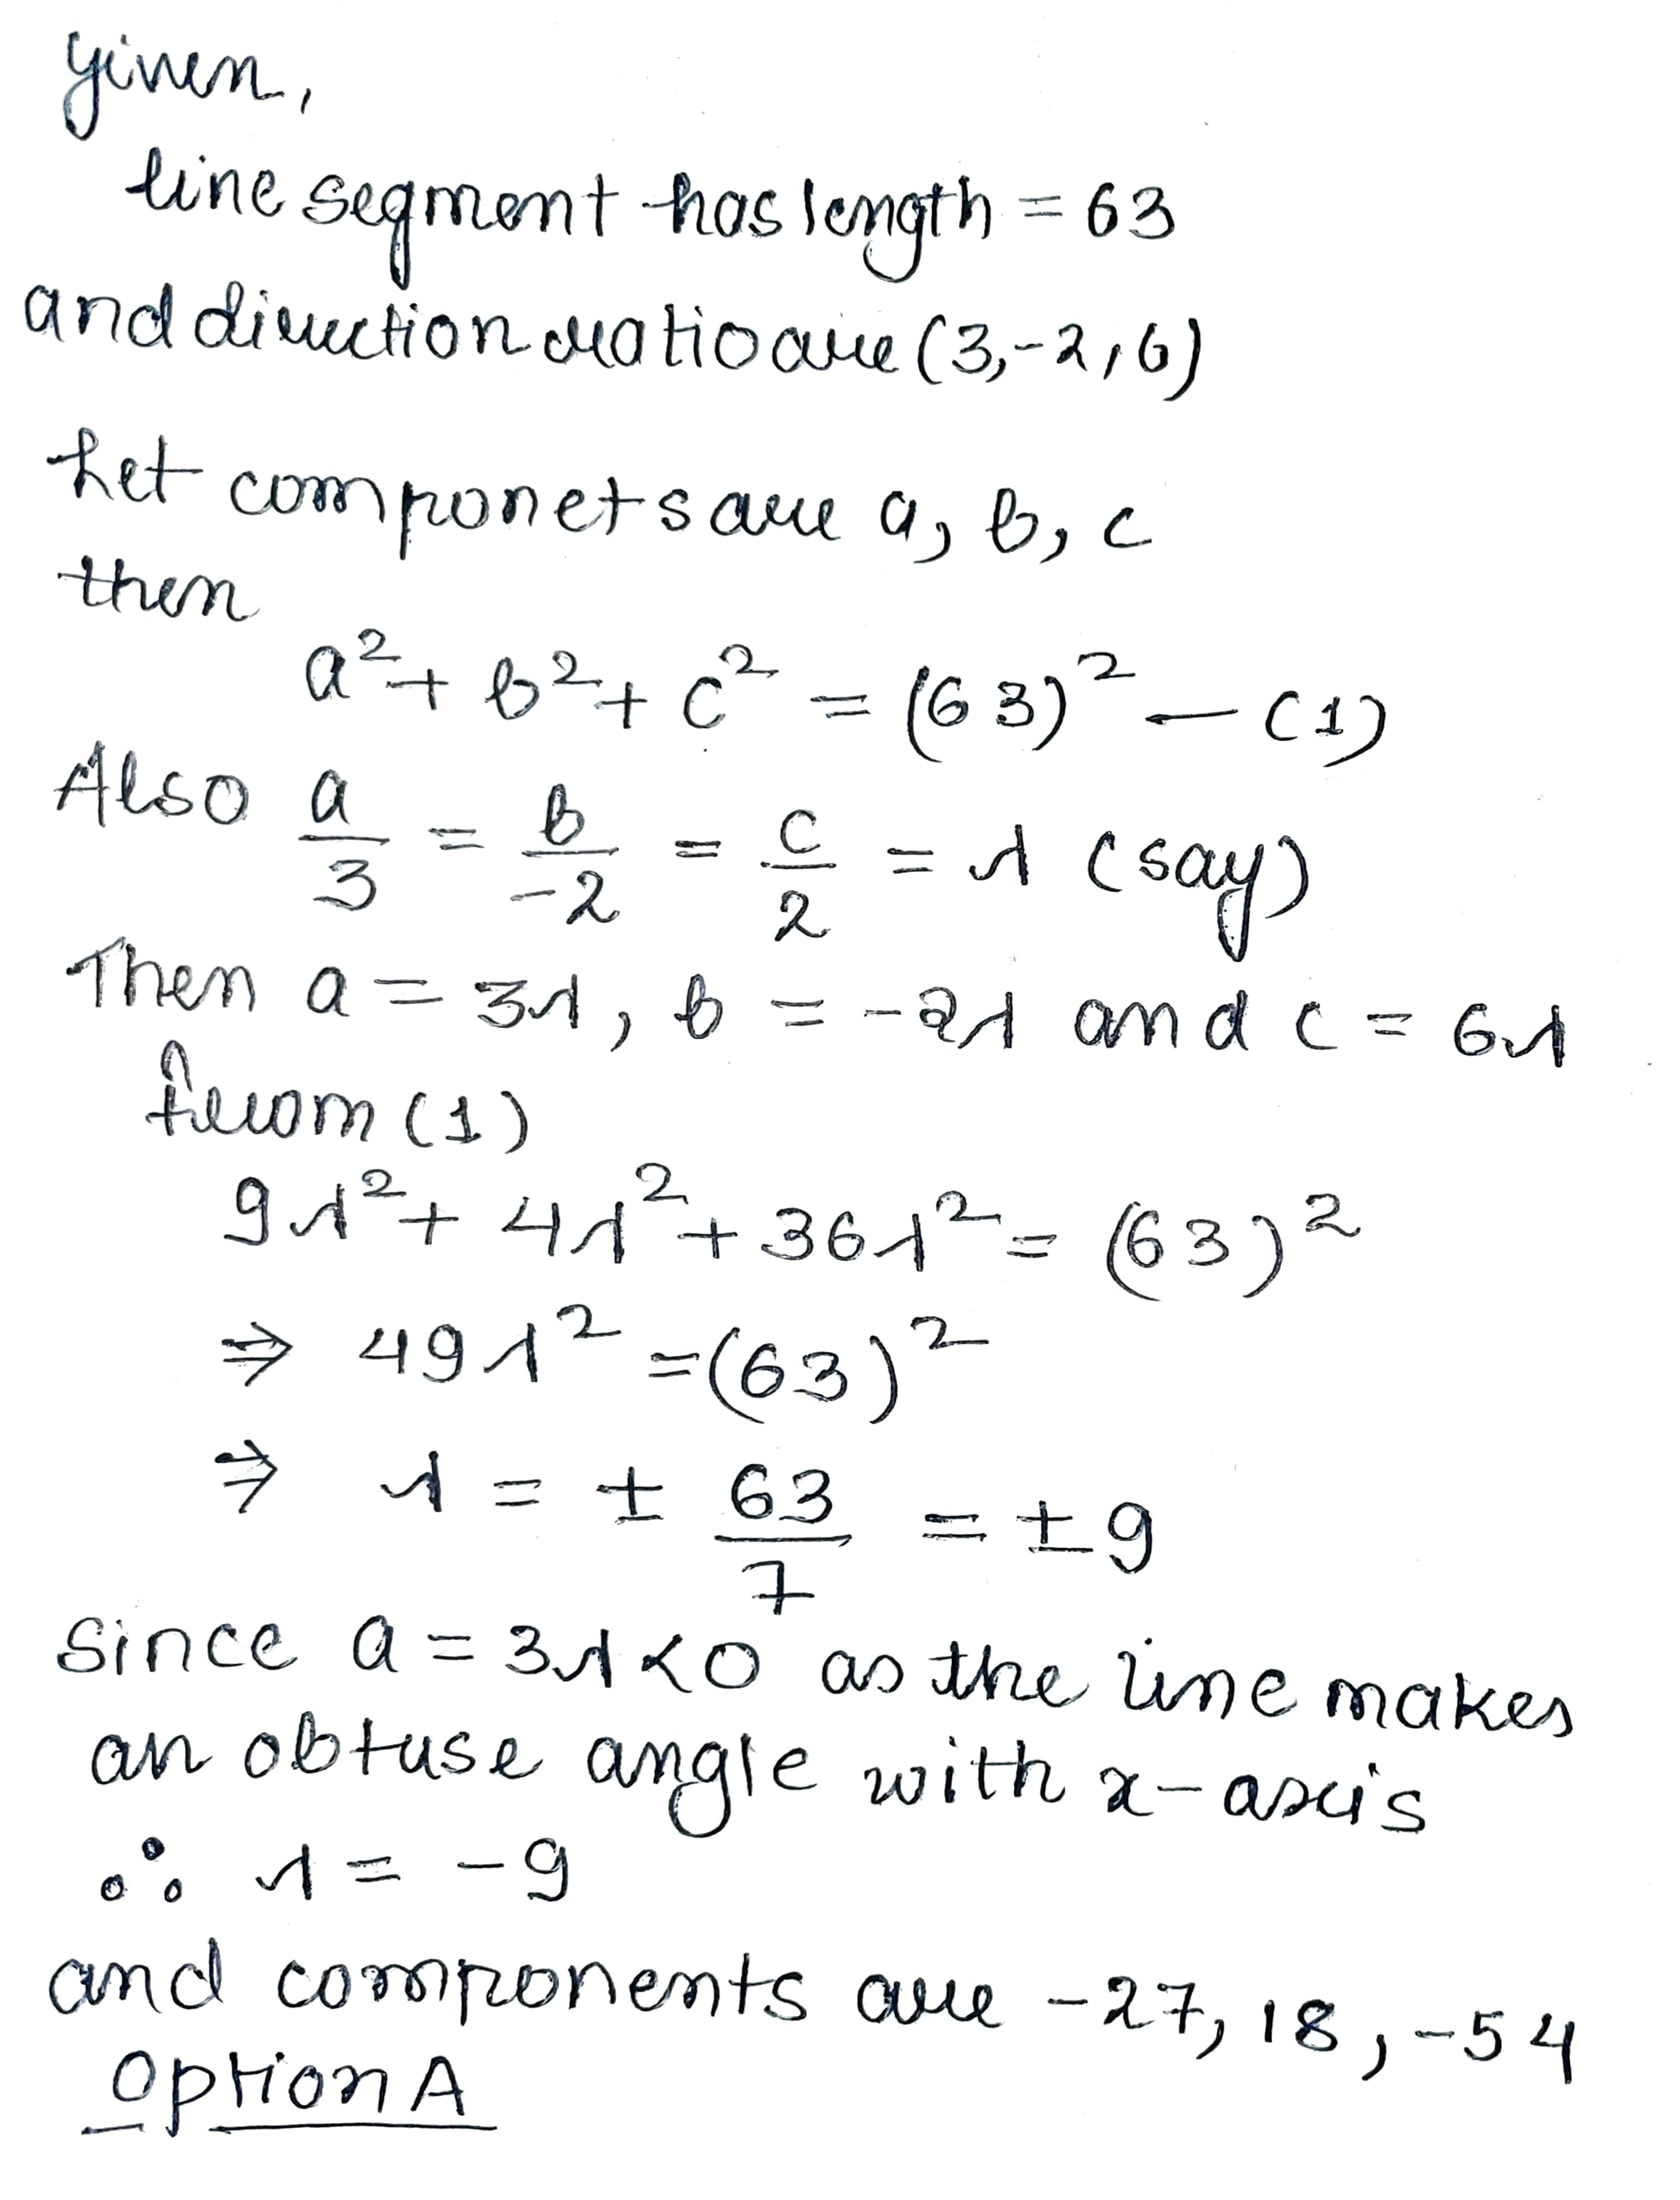 given,
line segment has length = 63
and direction ratio are (3,-2,6)
Let componets are a, b, c
then
a² + b² + c² = (63)² — (1)
Also a/3 = b/-2 = c/2 = λ (say)
Then a = 3λ, b = -2λ and c = 6λ
from (1)
9λ² + 4λ² + 36λ² = (63)²
⇒ 49λ² = (63)²
⇒ λ = ± 63/7 = ± 9
Since a = 3λ < 0 as the line makes
an obtuse angle with x-axis
∴ λ = -9
and components are -27, 18, -54
Option A